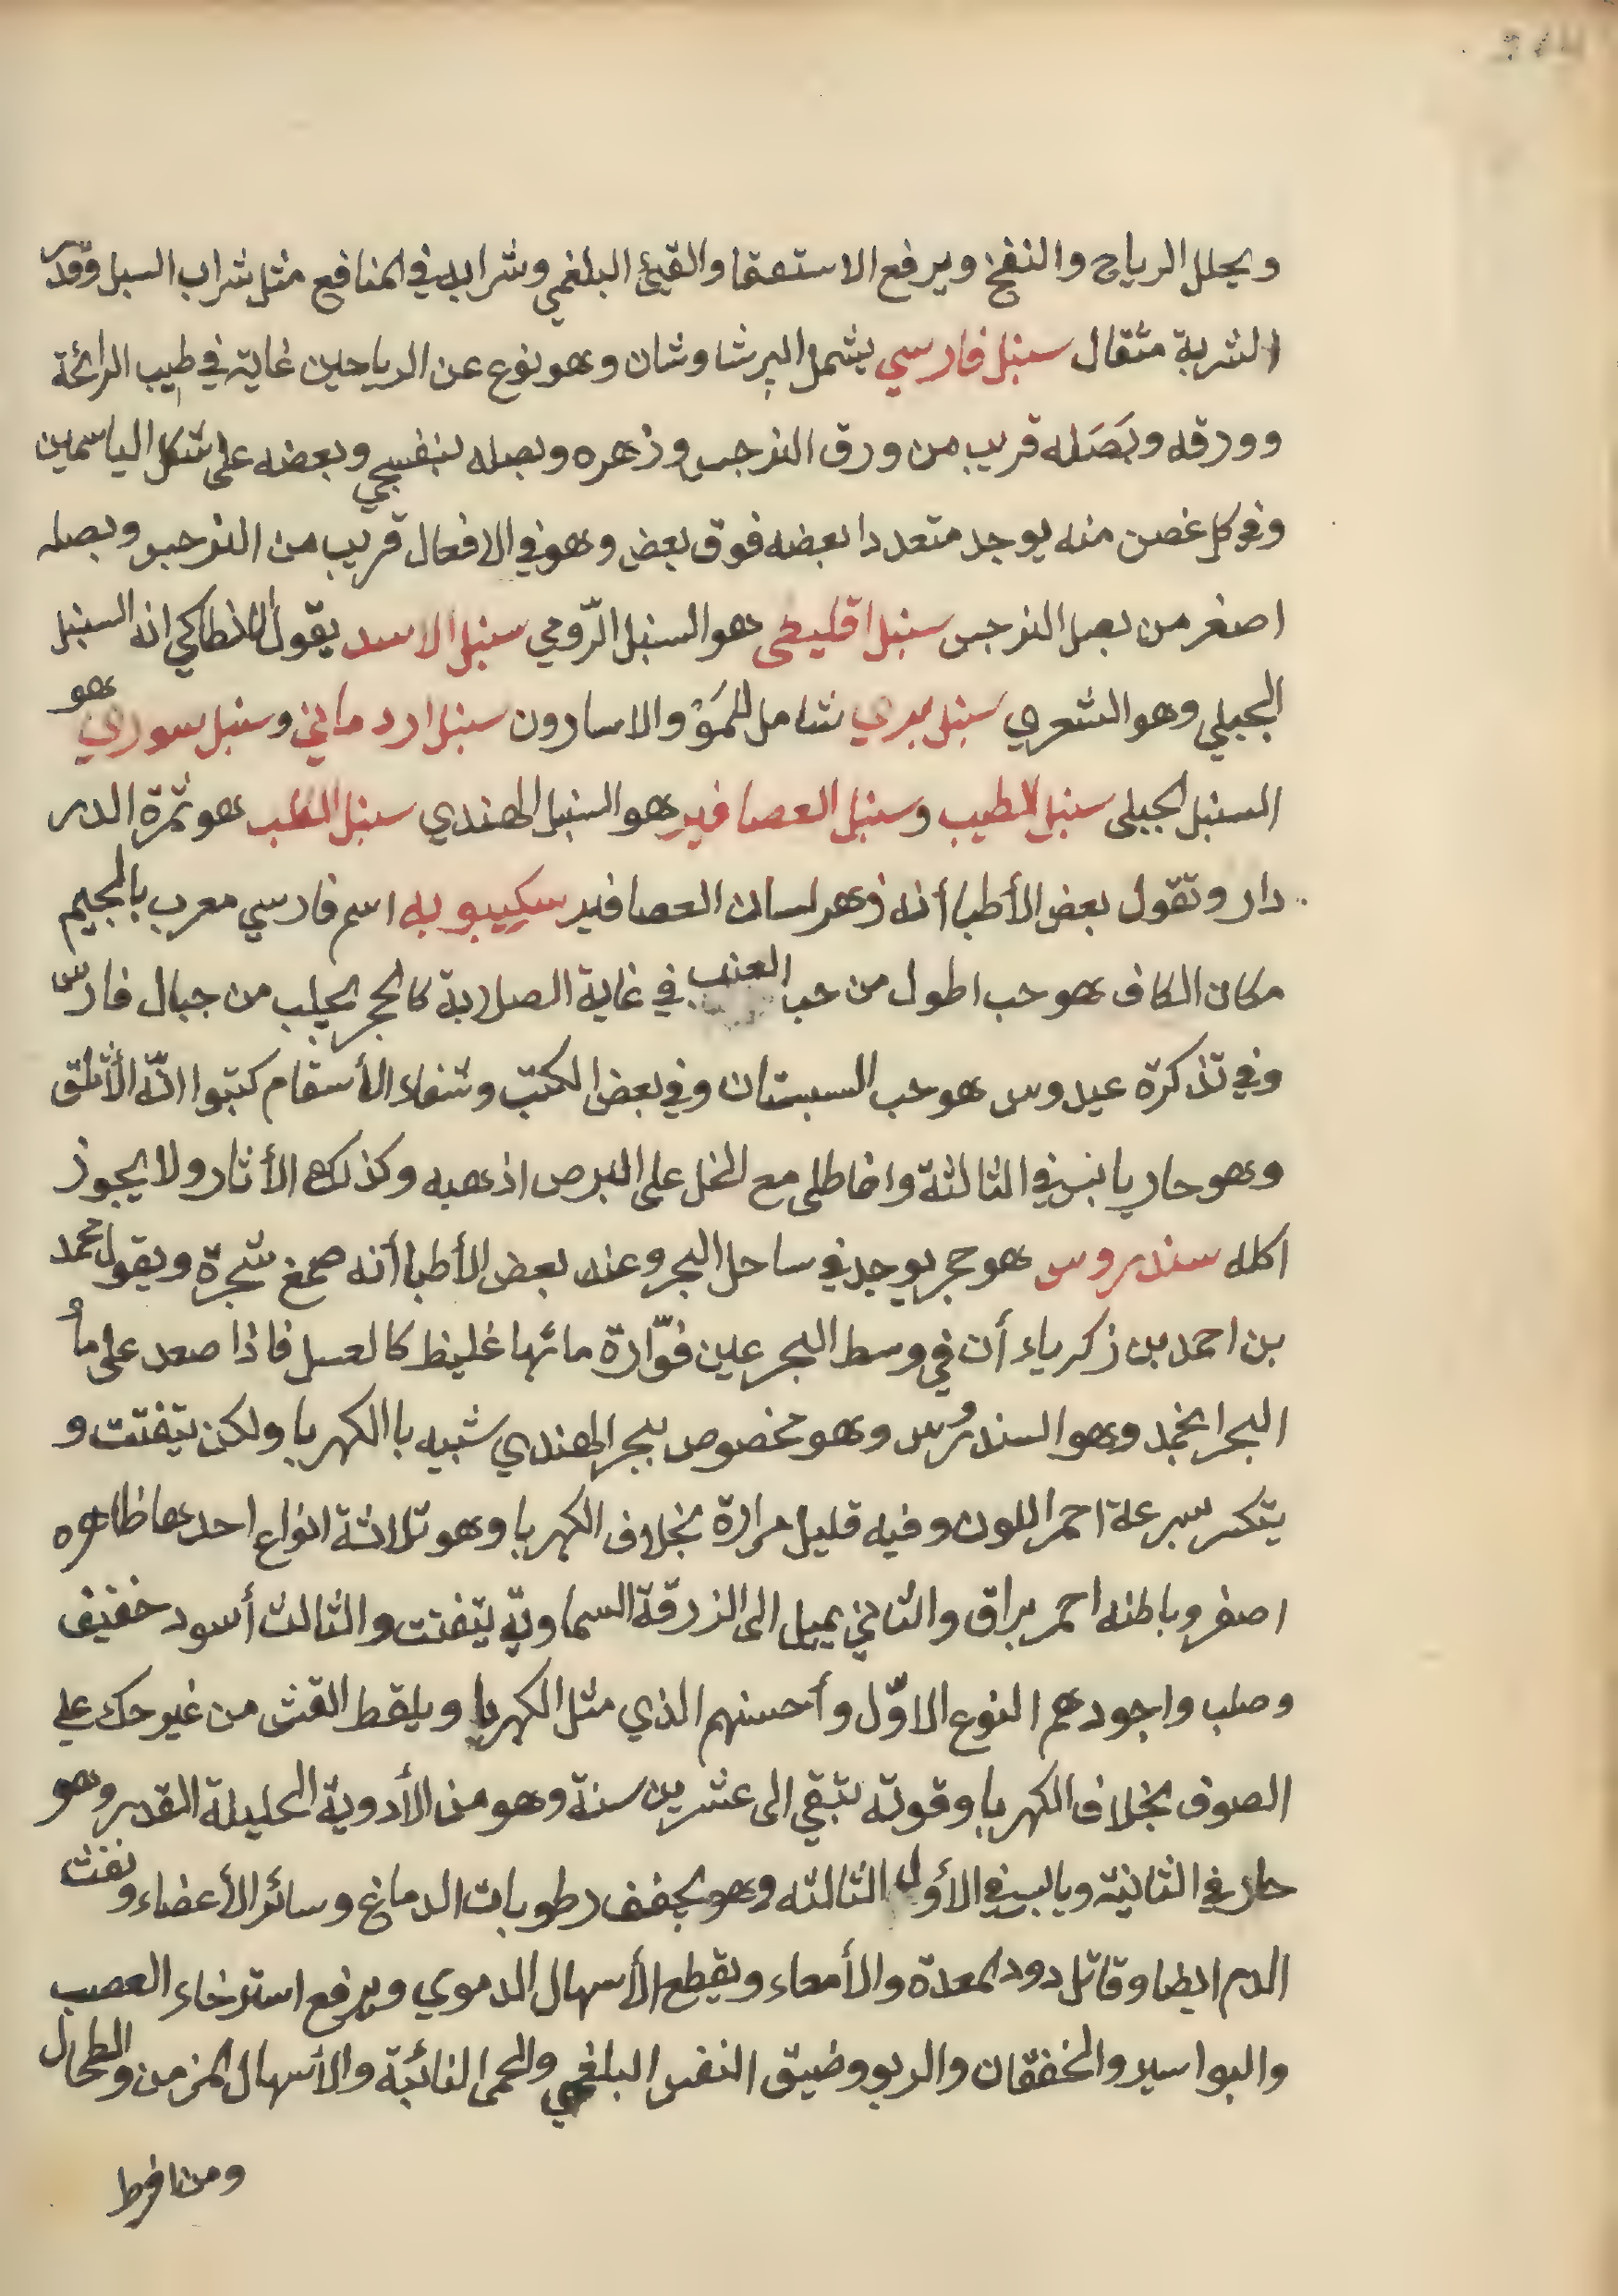 ويحلل الرياح والنفخ ويرفع الاستسقا والقيئ البلغمي وشرابه في المنافع مثل شراب السبل وقدر
الشربة مثقال سنبل فارسي يشمل البرشاوشان وهو نوع عن الرياحين غاية في طيب الرائحة
وورقه وبَصَله قريب من ورق النرجس وزهره وبصله بنفسجي وبعضه على شكل الياسمين
وفي كل غصن منه يوجد متعددا بعضه فوق بعض وهو في الافعال قريب من النرجس وبصله
اصغر من بصل النرجس سنبل اقليطى هو السنبل الرّومي سنبل الاسد يقول الأنطاكي انه السنبل
الجبلي وهو الشعري سنبل بري شامل للمَوْ والاسارون سنبل اردماني وسنبل سوري هو
السنبل الجبلى سنبل الطيب وسنبل العصافير هو السنبل الهندي سنبل الكلب هو ثمرة الدر
دار وتقول بعض الأطبا أنه زهر لسان العصافير سكيبويه اسم فارسي معرب بالجيم
مكان الكاف هو حب اطول من حب العنب في غاية الصلابة كالحجر يجلب من جبال فارس
وفي تذكرة عيدوس هو حب السبستان وفي بعض الكتب وشفاء الأسقام كتبوا انّه الأثلق
وهو حار يابس في الثالثة واذا طلى مع الخل على البرص اذهبه وكذلك الأثار ولا يجوز
اكله سندروس هو حجر يوجد في ساحل البحر وعند بعض الأطبا أنه صمغ شجرة ويقول محمد
بن احمد بن زكرياء أن في وسط البحر عين فوّارة مائها غليظ كالعسل فاذا صعد على ماُ
البحر انجمد وهو السندرُس وهو مخصوص ببحر الهندي شبيه باالكهربا ولكن يتفتت و
يتكسر سرعة احمر اللون وفيه قليل مرارة بخلاف الكهربا وهو ثلاثة انواع احدها ظاهره
اصفر وباطنه احمر براق والثاني يميل الى الزرقة السماويّة يتفتت والثالث أسود خفيف
وصلب واجودهم النوع الاوّل وأحسنهم الذي مثل الكهربا ويلقط القش من غير حك على
الصوف بخلاف الكهربا وقوته تبقي الى عشرين سنة وهو من الأدوية الجليلة القدر وهو
حار في الثانية ويابس في الأول الثالثه وهو يجفف رطوبات الدماغ وسائر الأعضاء ونفث
الدم ايضا وقاتل دود المعدة والأمعاء ويقطع الأسهال الدموي ويرفع استرخاء العصب
والبواسير والخفقان والربو وضيق النفس البلغمي والحمى النائبة والأسهال المزمن والطحال
ومن افرط